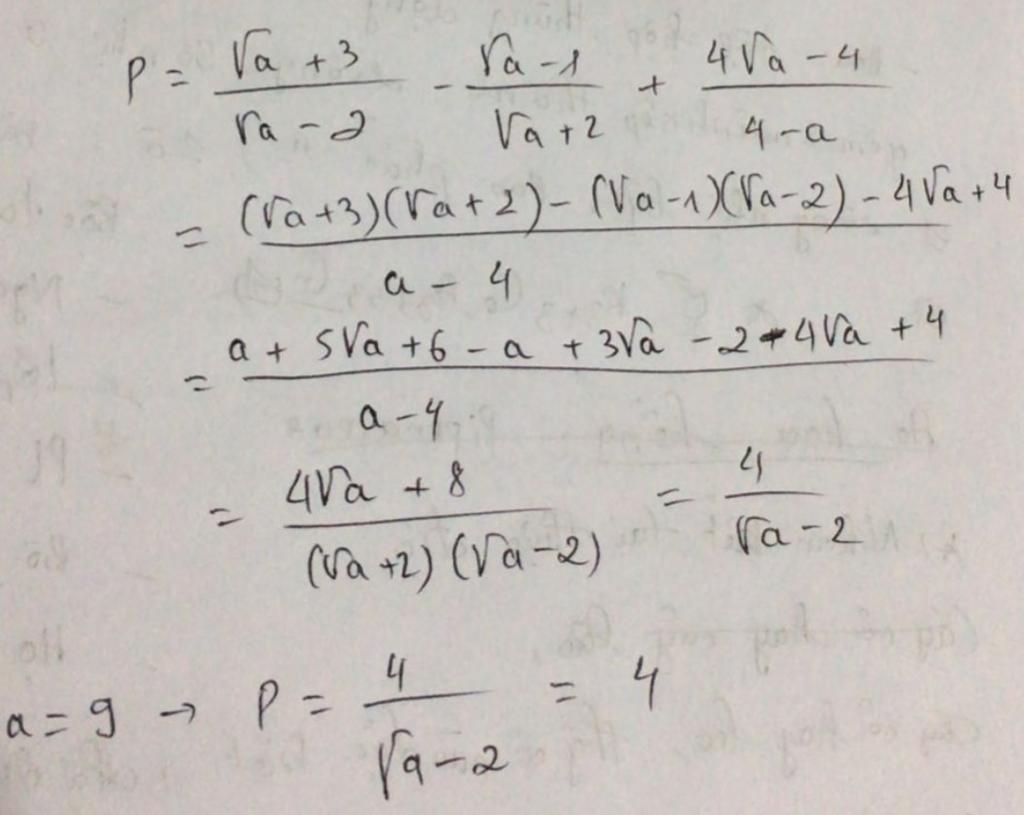 P = (√a + 3)/(√a − 2) − (√a − 1)/(√a + 2) + (4√a − 4)/(4 − a)
= ((√a + 3)(√a + 2) − (√a − 1)(√a − 2) − 4√a + 4)/(a − 4)
= (a + 5√a + 6 − a + 3√a − 2 − 4√a + 4)/(a − 4)
= (4√a + 8)/((√a + 2)(√a − 2)) = 4/(√a − 2)
a = 9 → P = 4/(√a − 2) = 4